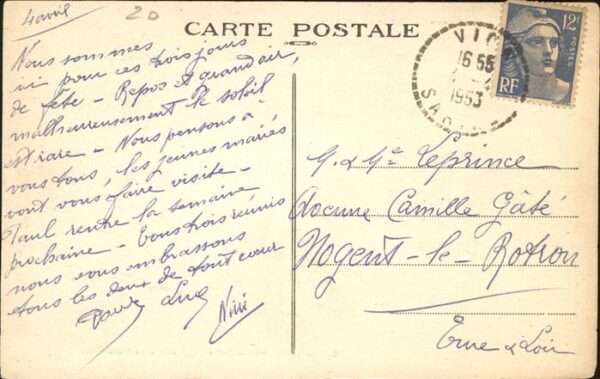 4 avril
20
CARTE POSTALE
Nous sommes
ici pour ces trois jours
de fête - Repos et grand air,
malheureusement le soleil
est rare - Nous pensons à
vous tous, les jeunes mariés
vont vous faire visite -
Paul rentre la semaine
prochaine - Tous trois réunis
nous vous embrassons
tous les deux de tout cœur
Luc
Nini
VIC
16 55
1953
SA
12F
POSTES
RF
M. & Me Leprince
Avenue Camille Gâté
Nogent-le-Rotrou
Eure & Loir